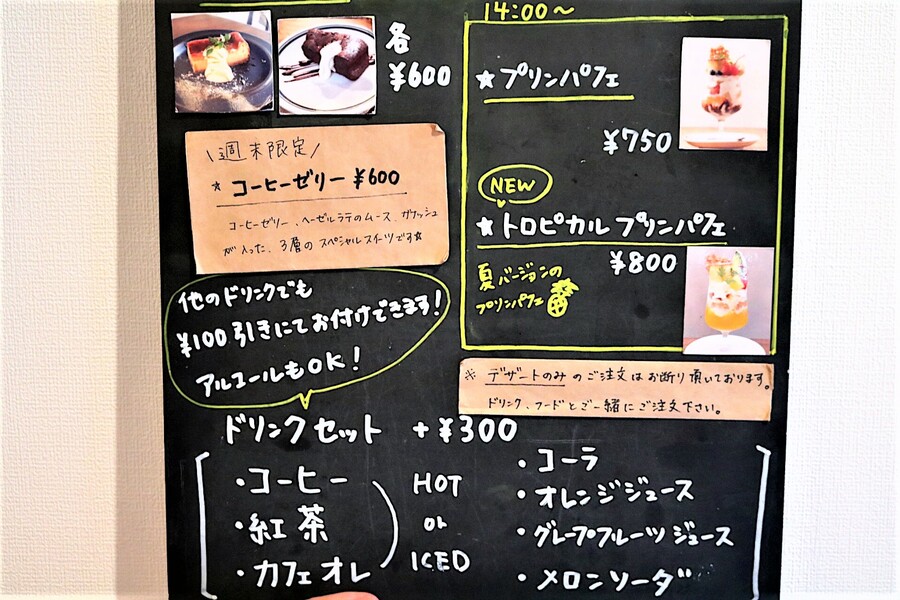 各
¥600
＼週末限定／
★ コーヒーゼリー ¥600
コーヒーゼリー、ヘーゼルラテのムース、ガナッシュ
が入った、3層のスペシャルスイーツです★
他のドリンクでも
¥100引きにてお付けできます！
アルコールもOK！
14:00〜
★プリンパフェ
¥750
NEW
★トロピカルプリンパフェ
¥800
夏バージョンの
プリンパフェ
※ デザートのみのご注文はお断り頂いております。
ドリンク、フードとご一緒にご注文下さい。
ドリンクセット +¥300
・コーヒー
・紅茶
・カフェオレ
HOT
or
ICED
・コーラ
・オレンジジュース
・グレープフルーツジュース
・メロンソーダ